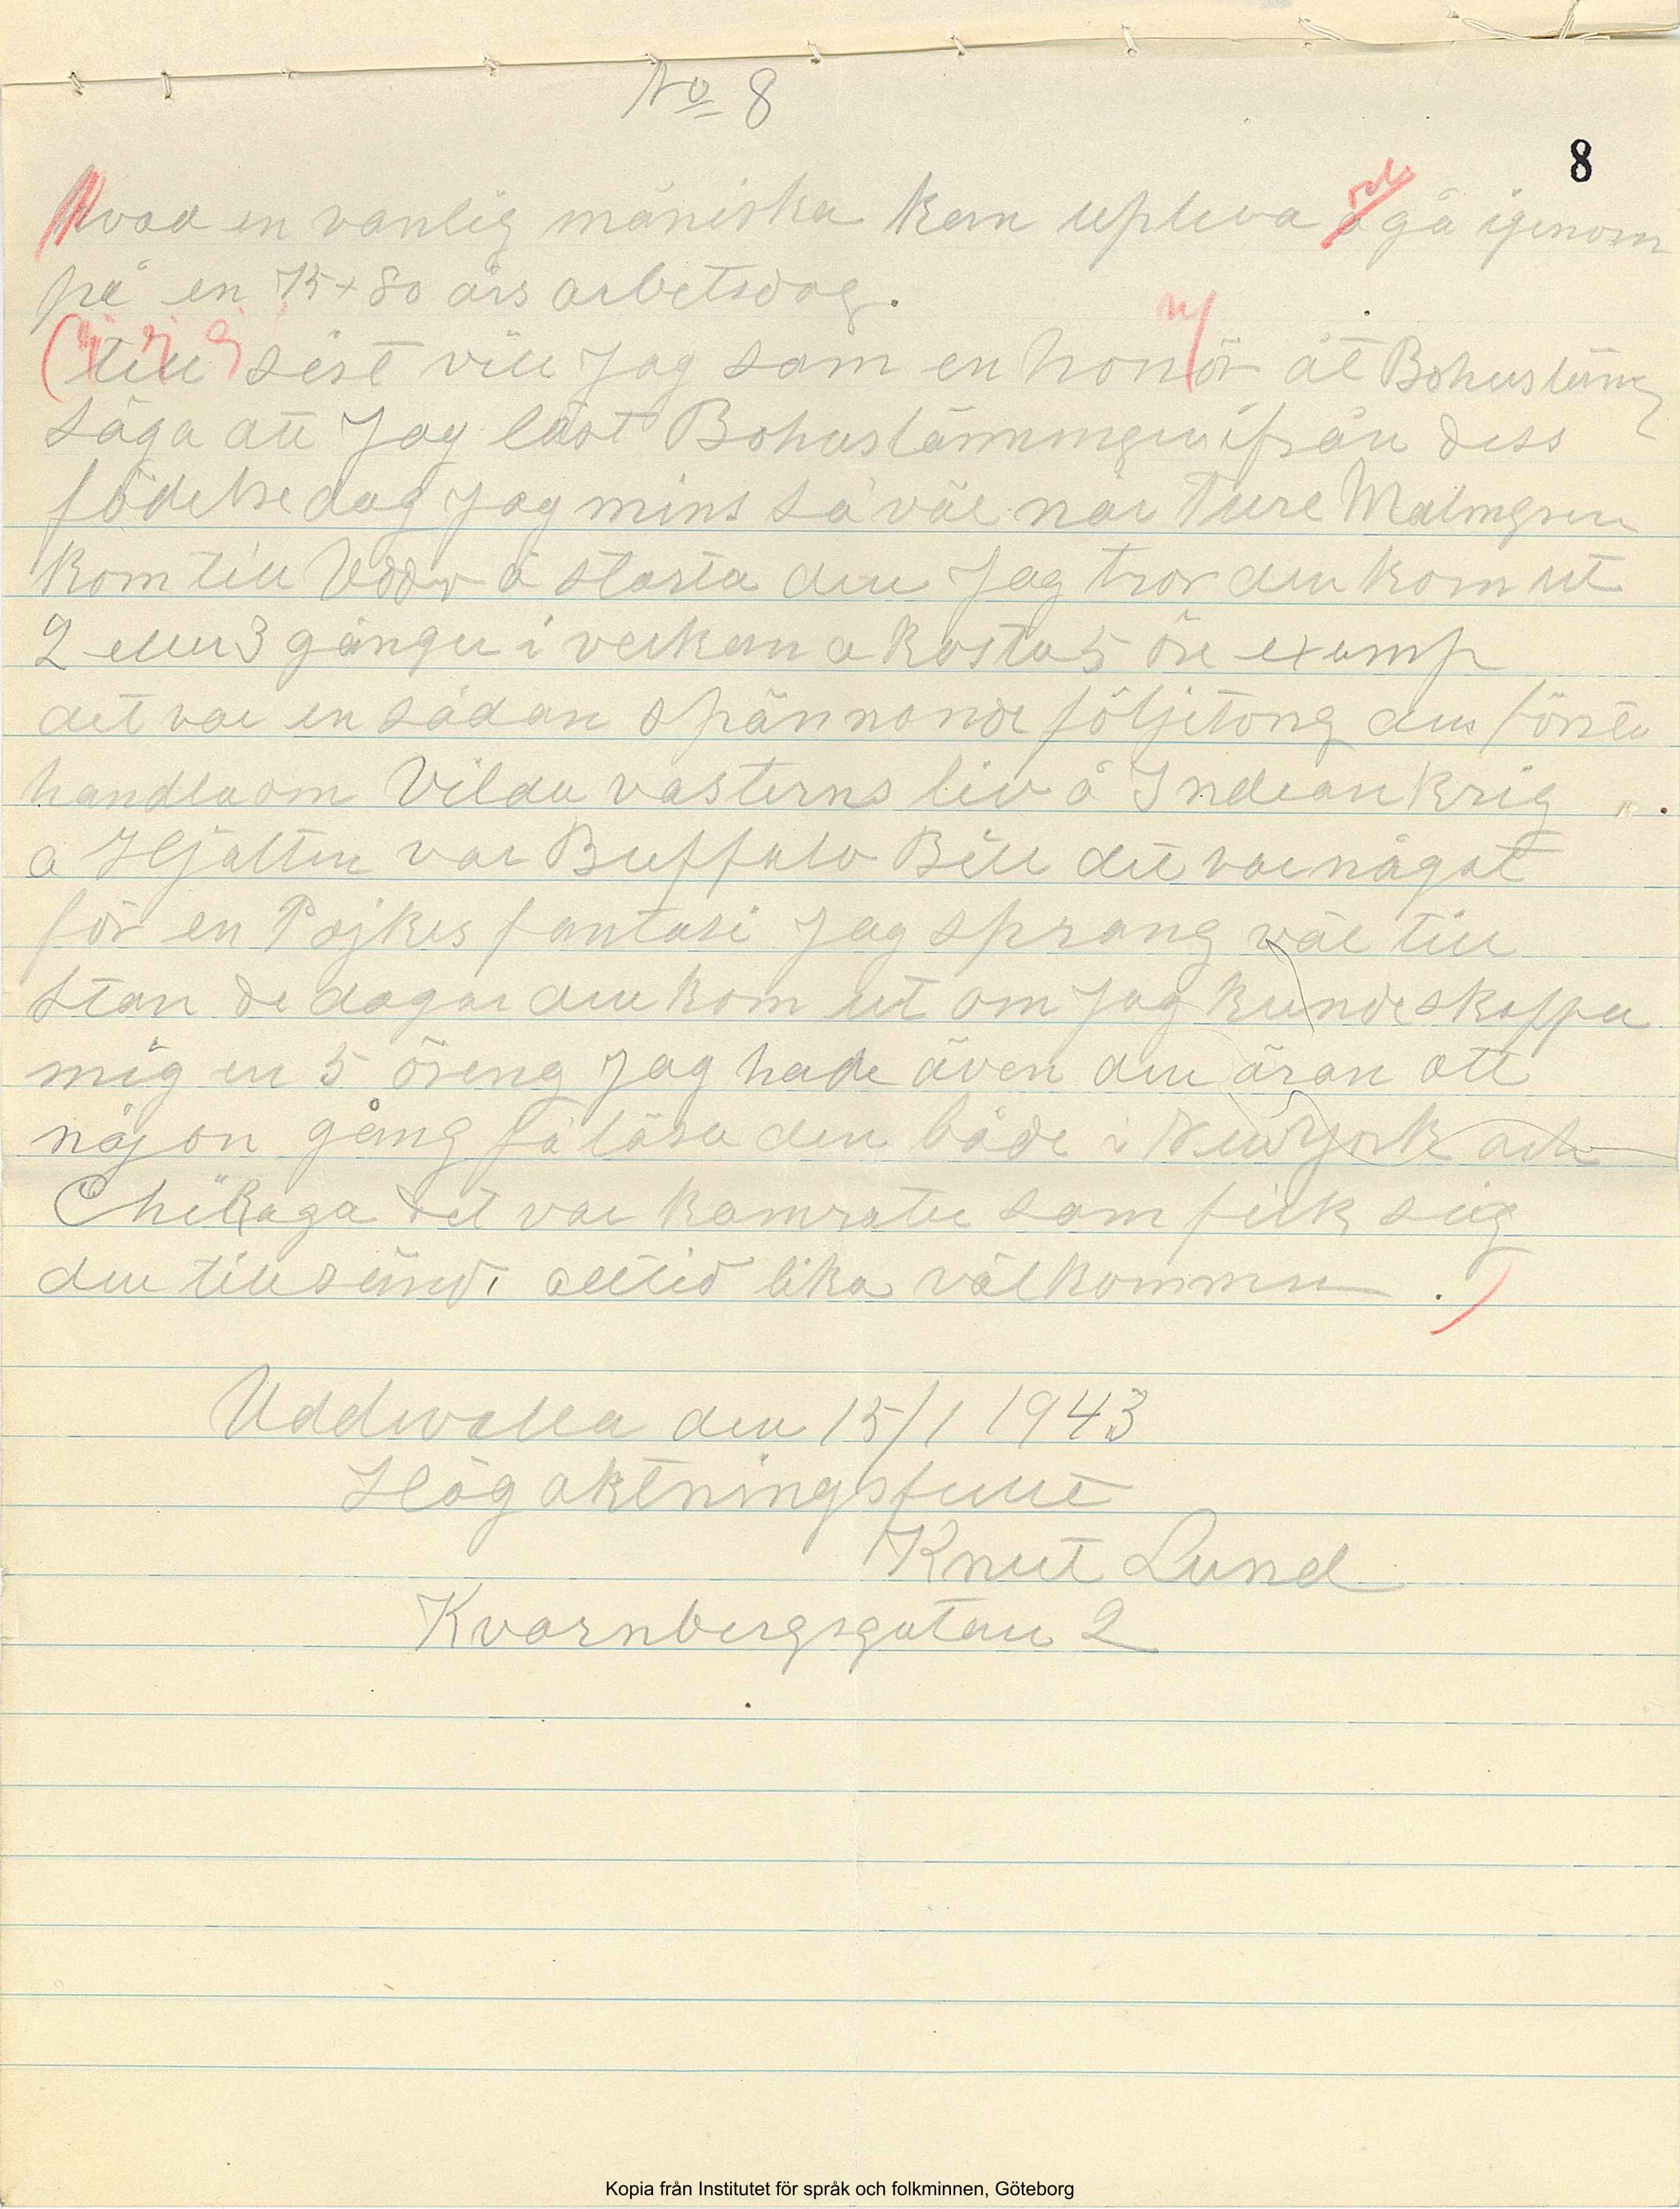 No 8
8
Hvad en vanlig mäniska kan upleva å gå igenom
på en 75 + 80 års arbetsdag.
till sist vill Jag som en honör åt Bohuslänng
säga att Jag läst Bohuslänningen ifrån dess
födelsedag Jag mins så väl när Ture Malmgren
kom till Uddv å starta den Jag tror den kom ut
2 eller 3 gånger i veckan a kosta 5 öre exemp
det var en sådan spännande följetong den första
handla om Vilda västerns liv å Indean krig
a Hjälten var Buffalo Bill det var något
för en Pojkes fantasi Jag sprang väl till
stan de dagar den kom ut om Jag kunde skaffa
mig en 5 öreng Jag hade även den äran att
någon gång få läsa den både i New York och
Chikaga det var kamrater som fick sig
den till sänd. alltid lika välkommen .)
Uddevalla den 15/1 1943
Högaktningsfullt
Knut Lund
Kvarnbergsgatan 2
Kopia från Institutet för språk och folkminnen, Göteborg